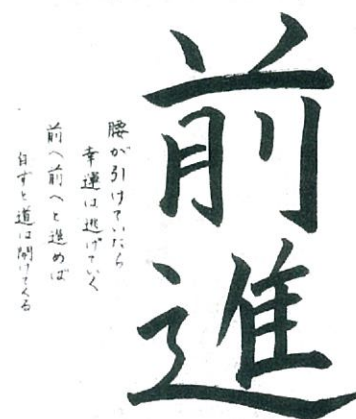 前進
腰が引けていたら
幸運は逃げていく
前へ前へと進めば
自ずと道は開けてくる